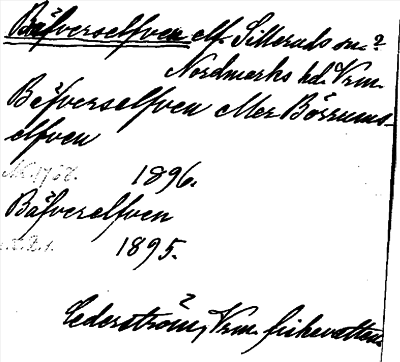 Bäfverselfven elf. Silleruds sn.?
Nordmarks hd. Vrm.
Bäfverselfven eller Börrums-
elfven
1896.
Bäfverselfven
1895.
Cederström, Vrm. fiskevatten